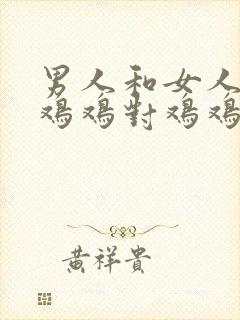 男人和女人
鸡鸡對鸡鸡
黄祥貴